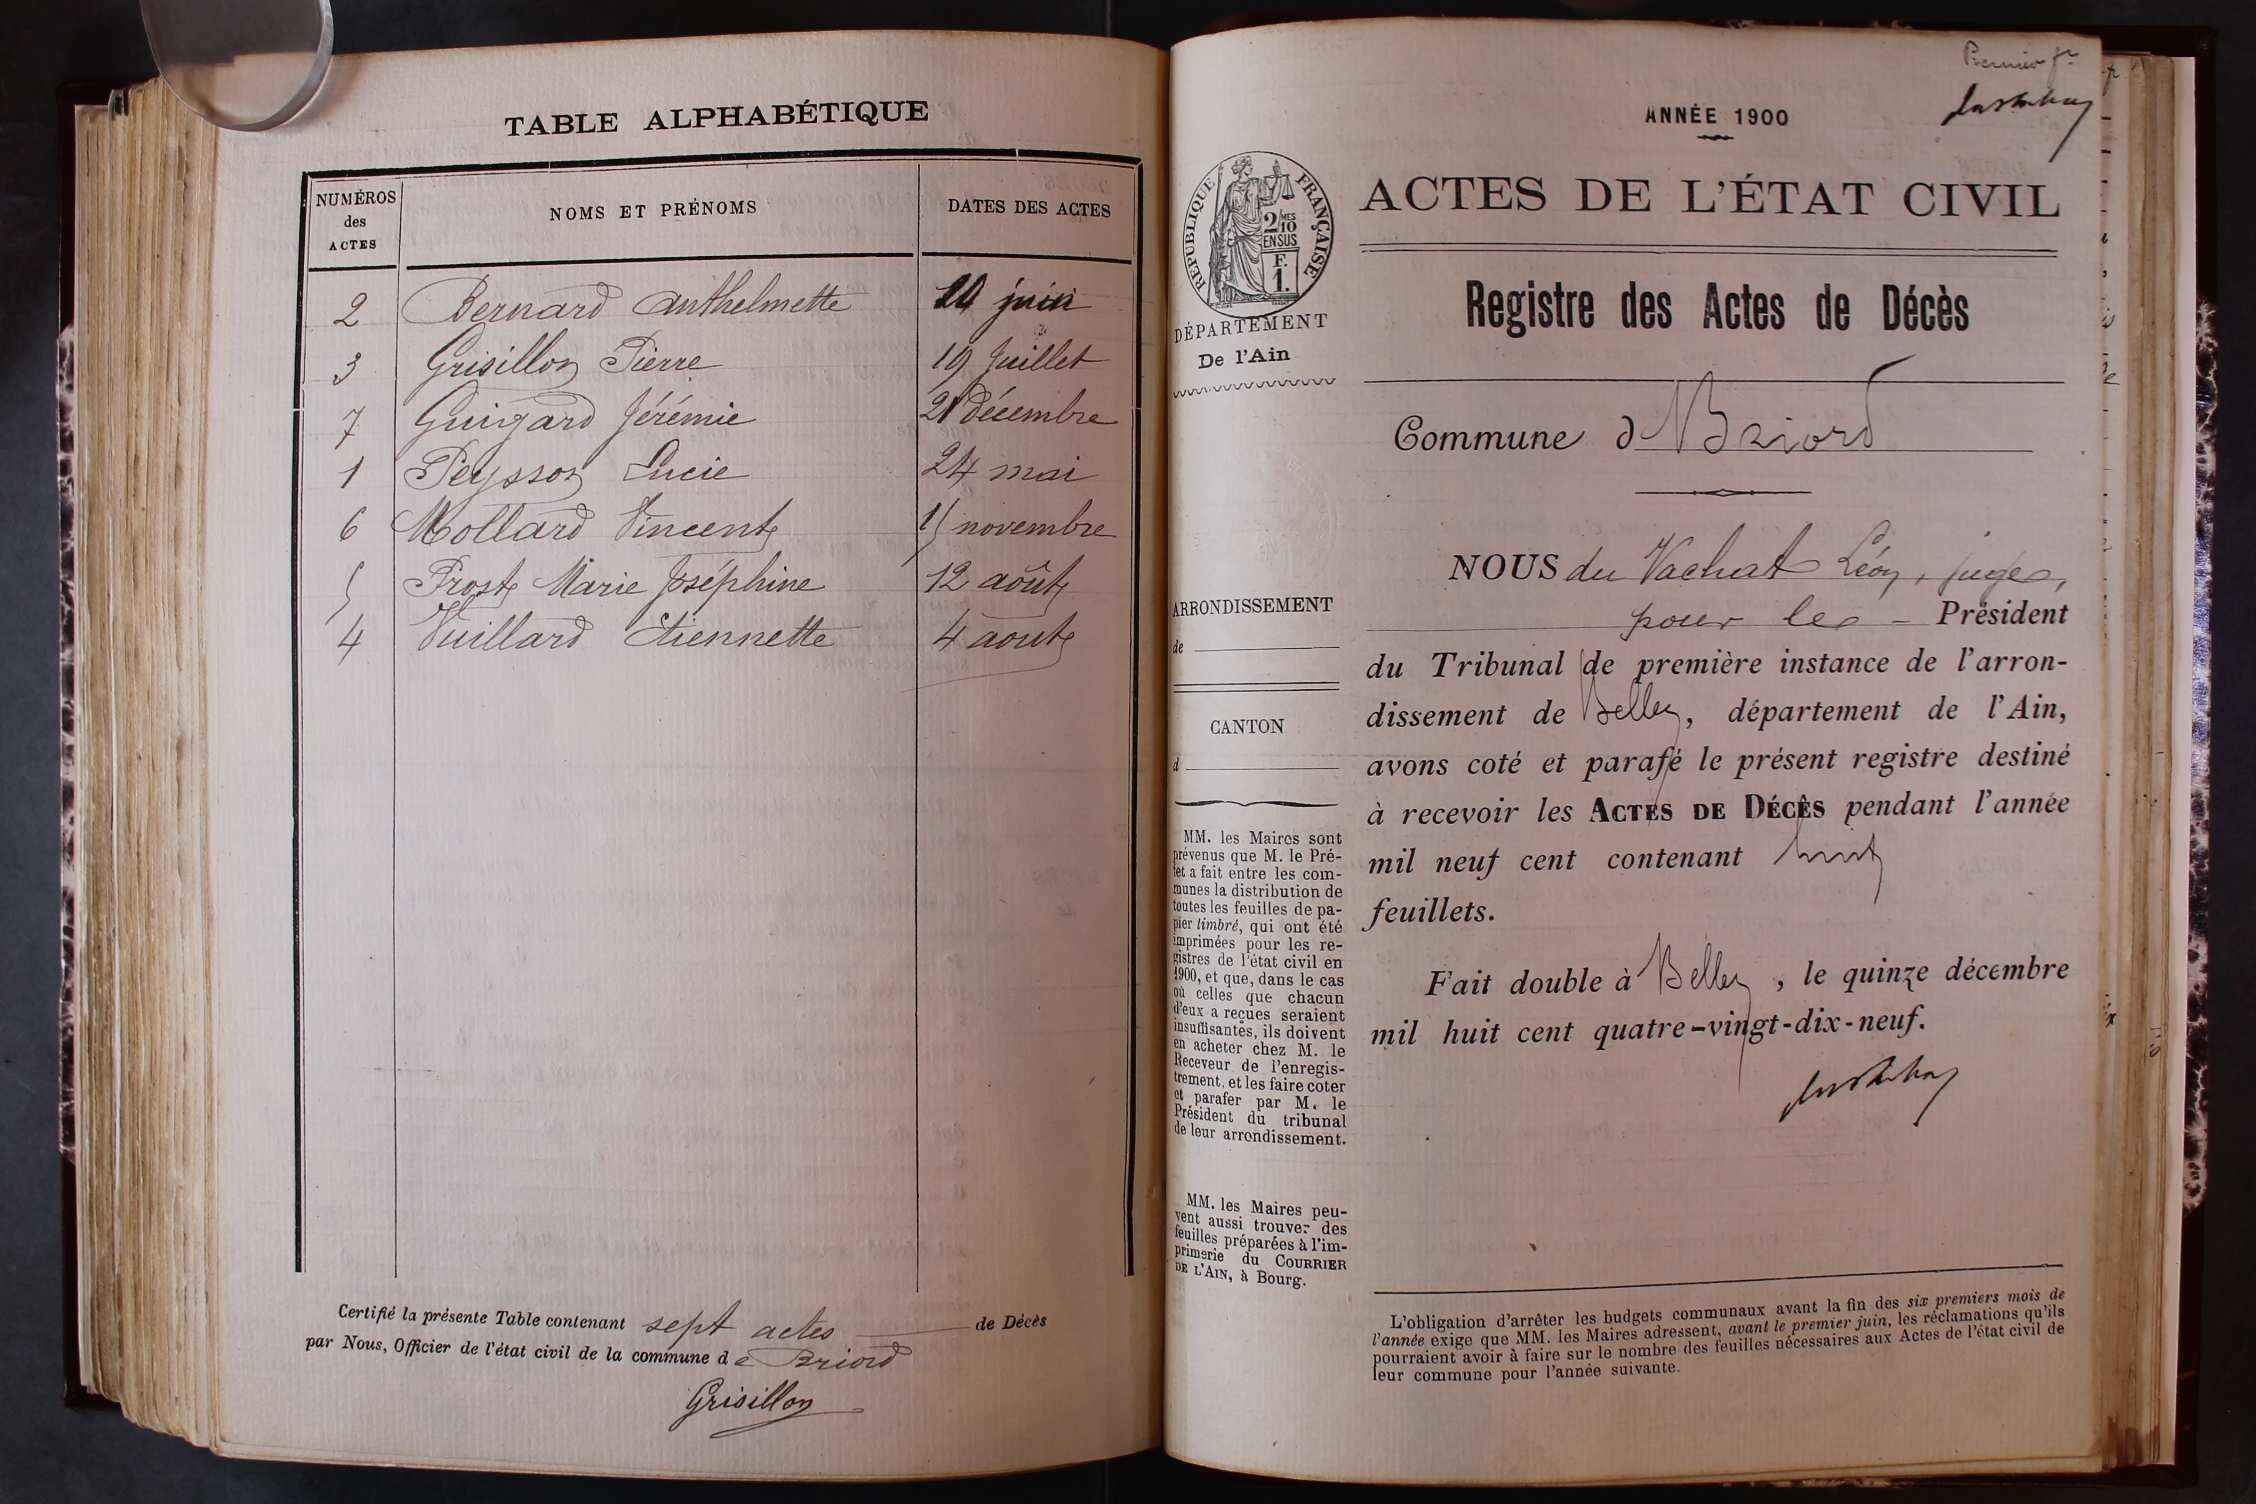 TABLE ALPHABÉTIQUE
NUMÉROS
des
ACTES
NOMS ET PRÉNOMS
DATES DES ACTES
2 Bernard Anthelmette juin
3 Grisillon Pierre 19 juillet
7 Guigard Jérémie 21 décembre
1 Peysson Lucie 24 mai
6 Mollard Vincent 15 novembre
5 Prost Marie Joséphine 12 août
4 Vuillard Etiennette 4 aout
Certifié la présente Table contenant sept actes de Décès
par Nous, Officier de l'état civil de la commune de Briord
Grisillon
Premier
ANNÉE 1900
RÉPUBLIQUE FRANÇAISE
2/10 MES
EN SUS
F.
1.
DÉPARTEMENT
De l'Ain
ARRONDISSEMENT
de
CANTON
d
MM. les Maires sont
prévenus que M. le Pré-
fet a fait entre les com-
munes la distribution de
toutes les feuilles de pa-
pier timbré, qui ont été
imprimées pour les re-
gistres de l'état civil en
1900, et que, dans le cas
où celles que chacun
d'eux a reçues seraient
insuffisantes, ils doivent
en acheter chez M. le
Receveur de l'enregis-
trement, et les faire coter
et parafer par M. le
Président du tribunal
de leur arrondissement.
MM. les Maires peu-
vent aussi trouver des
feuilles préparées à l'im-
primerie du COURRIER
DE L'AIN, à Bourg.
ACTES DE L'ÉTAT CIVIL
Registre des Actes de Décès
Commune d Briord
NOUS du Vachat Léon, juge,
pour le – Président
du Tribunal de première instance de l'arron-
dissement de Belley, département de l'Ain,
avons coté et parafé le présent registre destiné
à recevoir les ACTES DE DÉCÈS pendant l'année
mil neuf cent contenant huit
feuillets.
Fait double à Belley, le quinze décembre
mil huit cent quatre-vingt-dix-neuf.
L'obligation d'arrêter les budgets communaux avant la fin des six premiers mois de
l'année exige que MM. les Maires adressent, avant le premier juin, les réclamations qu'ils
pourraient avoir à faire sur le nombre des feuilles nécessaires aux Actes de l'état civil de
leur commune pour l'année suivante.